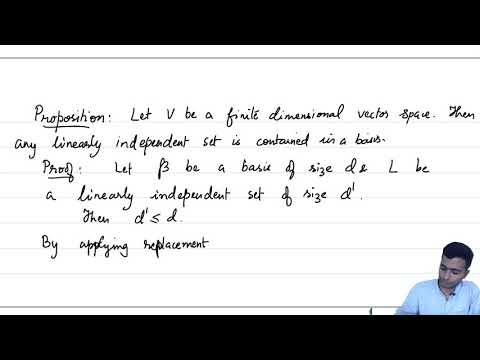 Proposition: Let V be a finite dimensional vector space. Then
any linearly independent set is contained in a basis.
Proof: Let β be a basis of size d & L be
a linearly independent set of size d'.
Then d' ≤ d.
By applying replacement